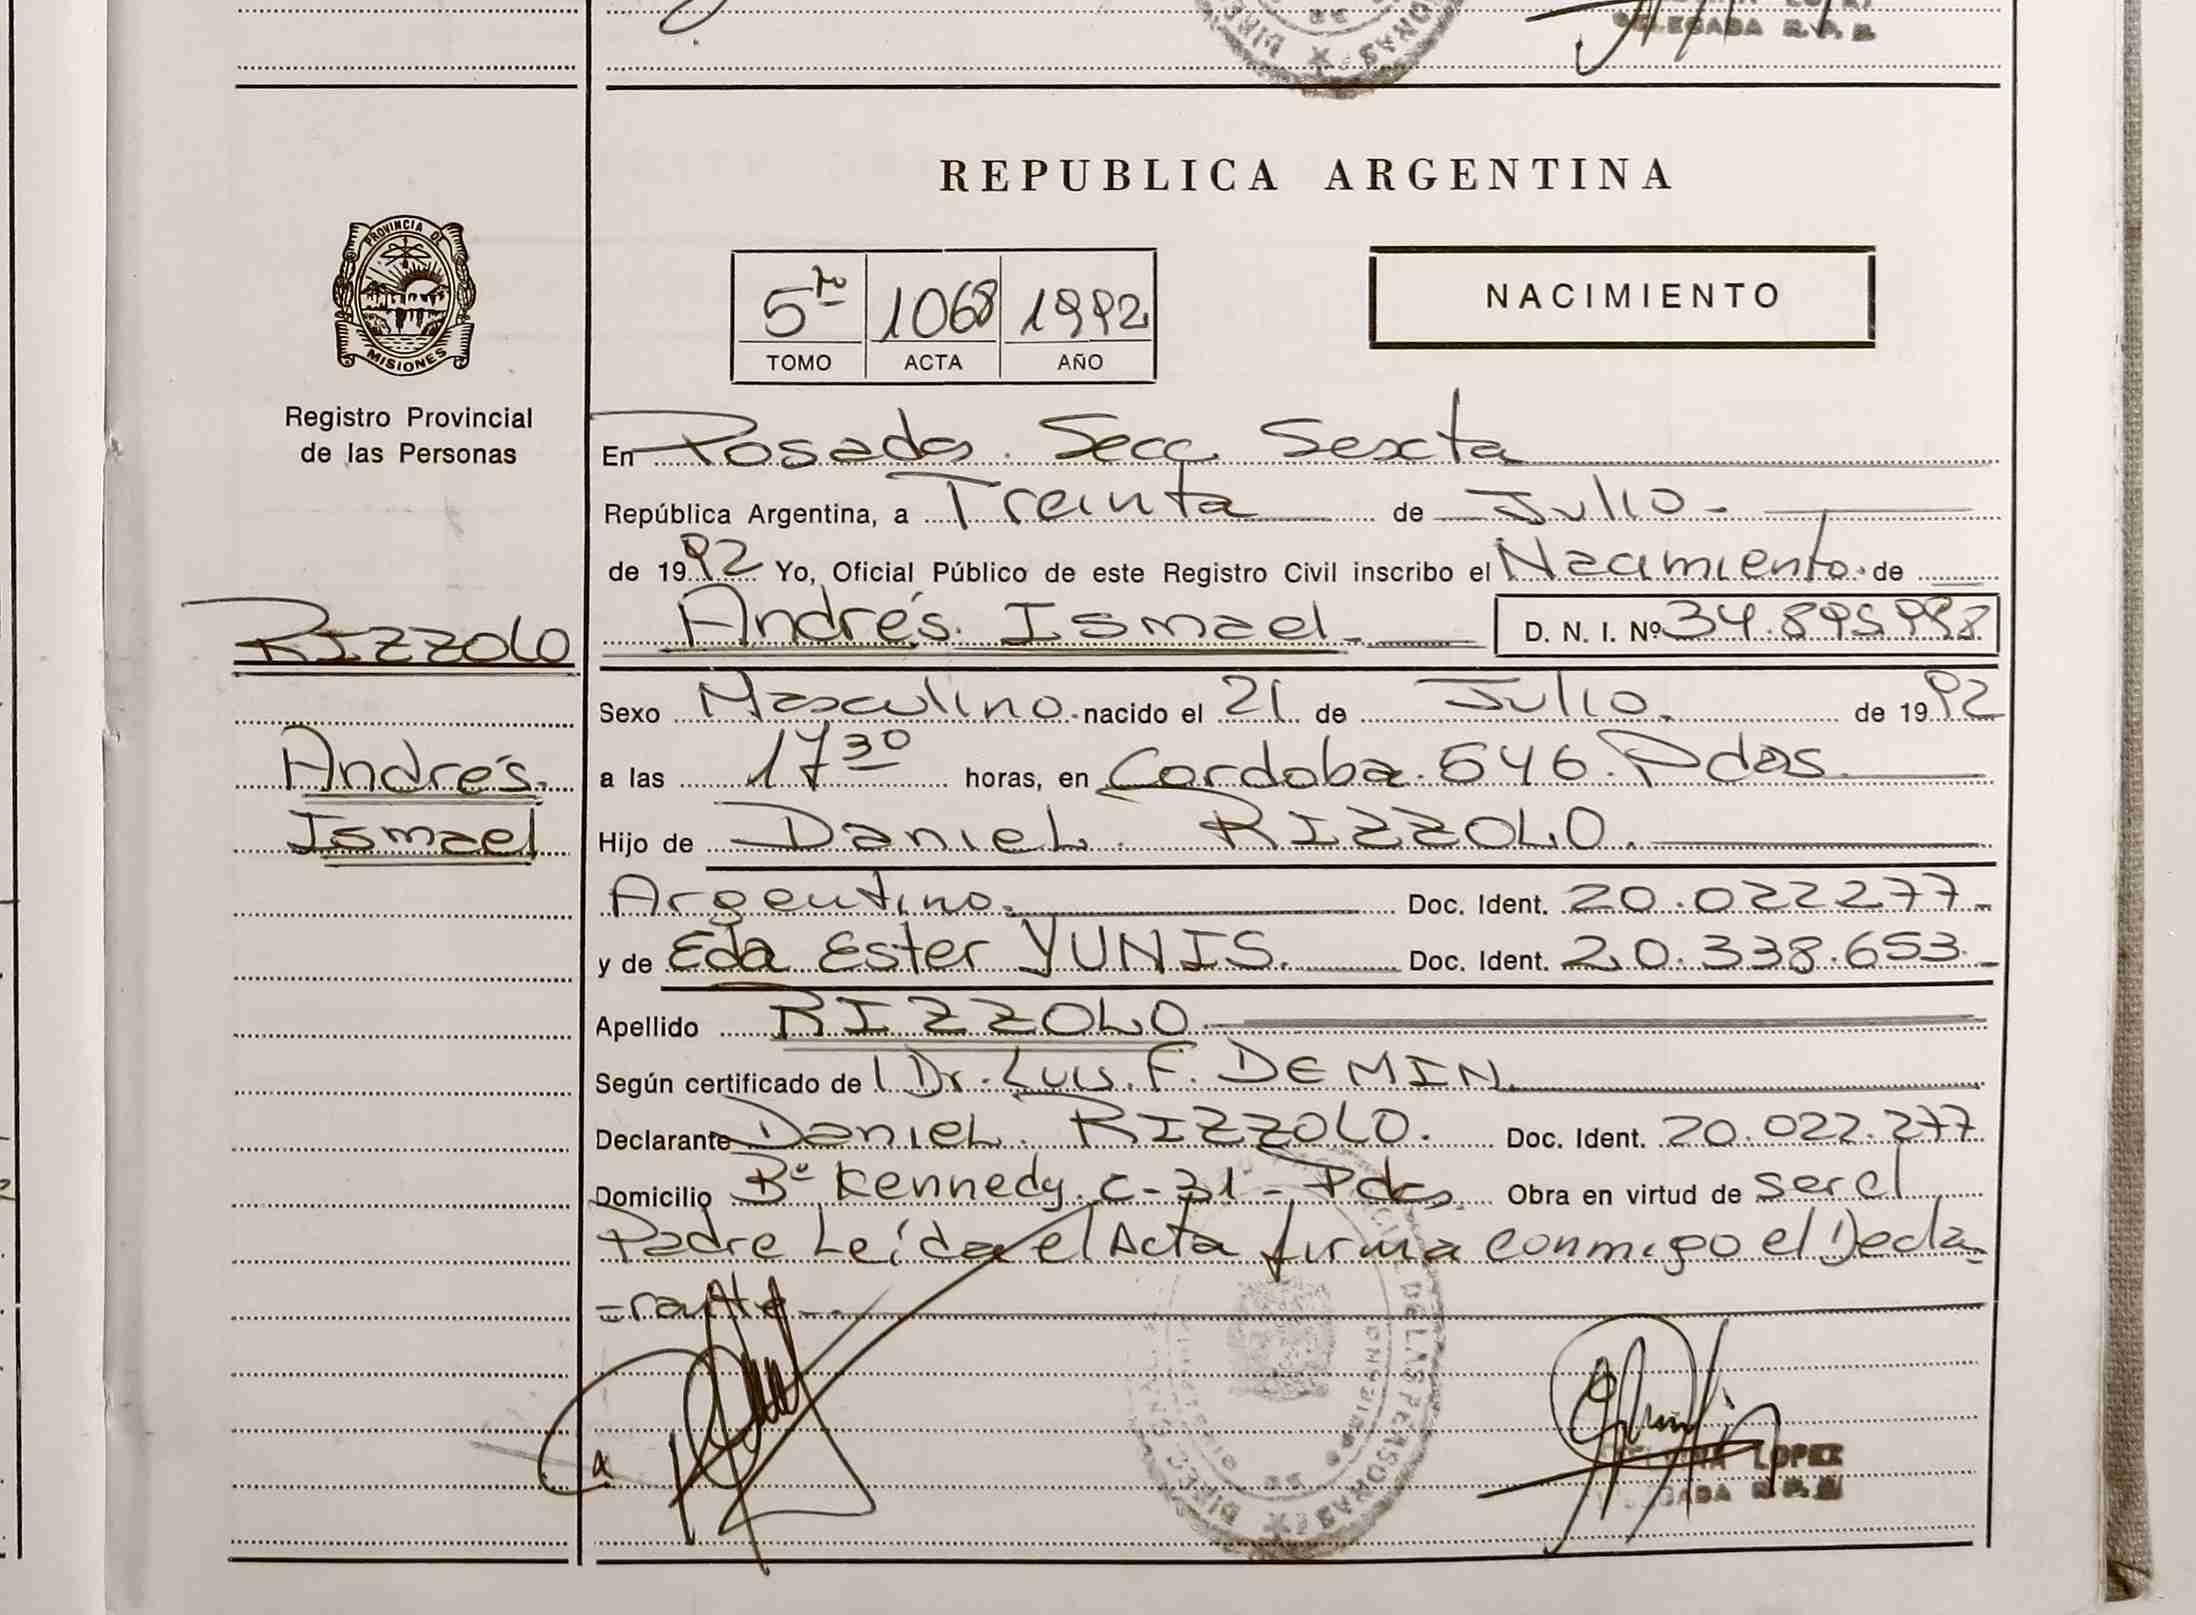 REPUBLICA ARGENTINA
PROVINCIA DE
MISIONES
Registro Provincial
de las Personas
5to 1068 1992
TOMO ACTA AÑO
NACIMIENTO
En Posadas. Secc. Sexta
República Argentina, a Treinta de Julio.
de 1992 Yo, Oficial Público de este Registro Civil inscribo el Nacimiento. de
Andrés. Ismael. D. N. I. Nº 34.895.998
RIZZOLO
Andrés.
Ismael
Sexo Masculino. nacido el 21 de Julio. de 1992
a las 17 30 horas, en Cordoba. 646. Pdas.
Hijo de Daniel. RIZZOLO.
Argentino. Doc. Ident. 20.022277.
y de Eda Ester YUNIS. Doc. Ident. 20.338.653.
Apellido RIZZOLO.
Según certificado de l Dr. Luis. F. DEMIN.
Declarante Daniel. RIZZOLO. Doc. Ident. 20.022.277
Domicilio Bº Kennedy. C-31- Pdas. Obra en virtud de ser el
Padre Leída el Acta firma conmigo el Decla
=rante-.
LOPEZ